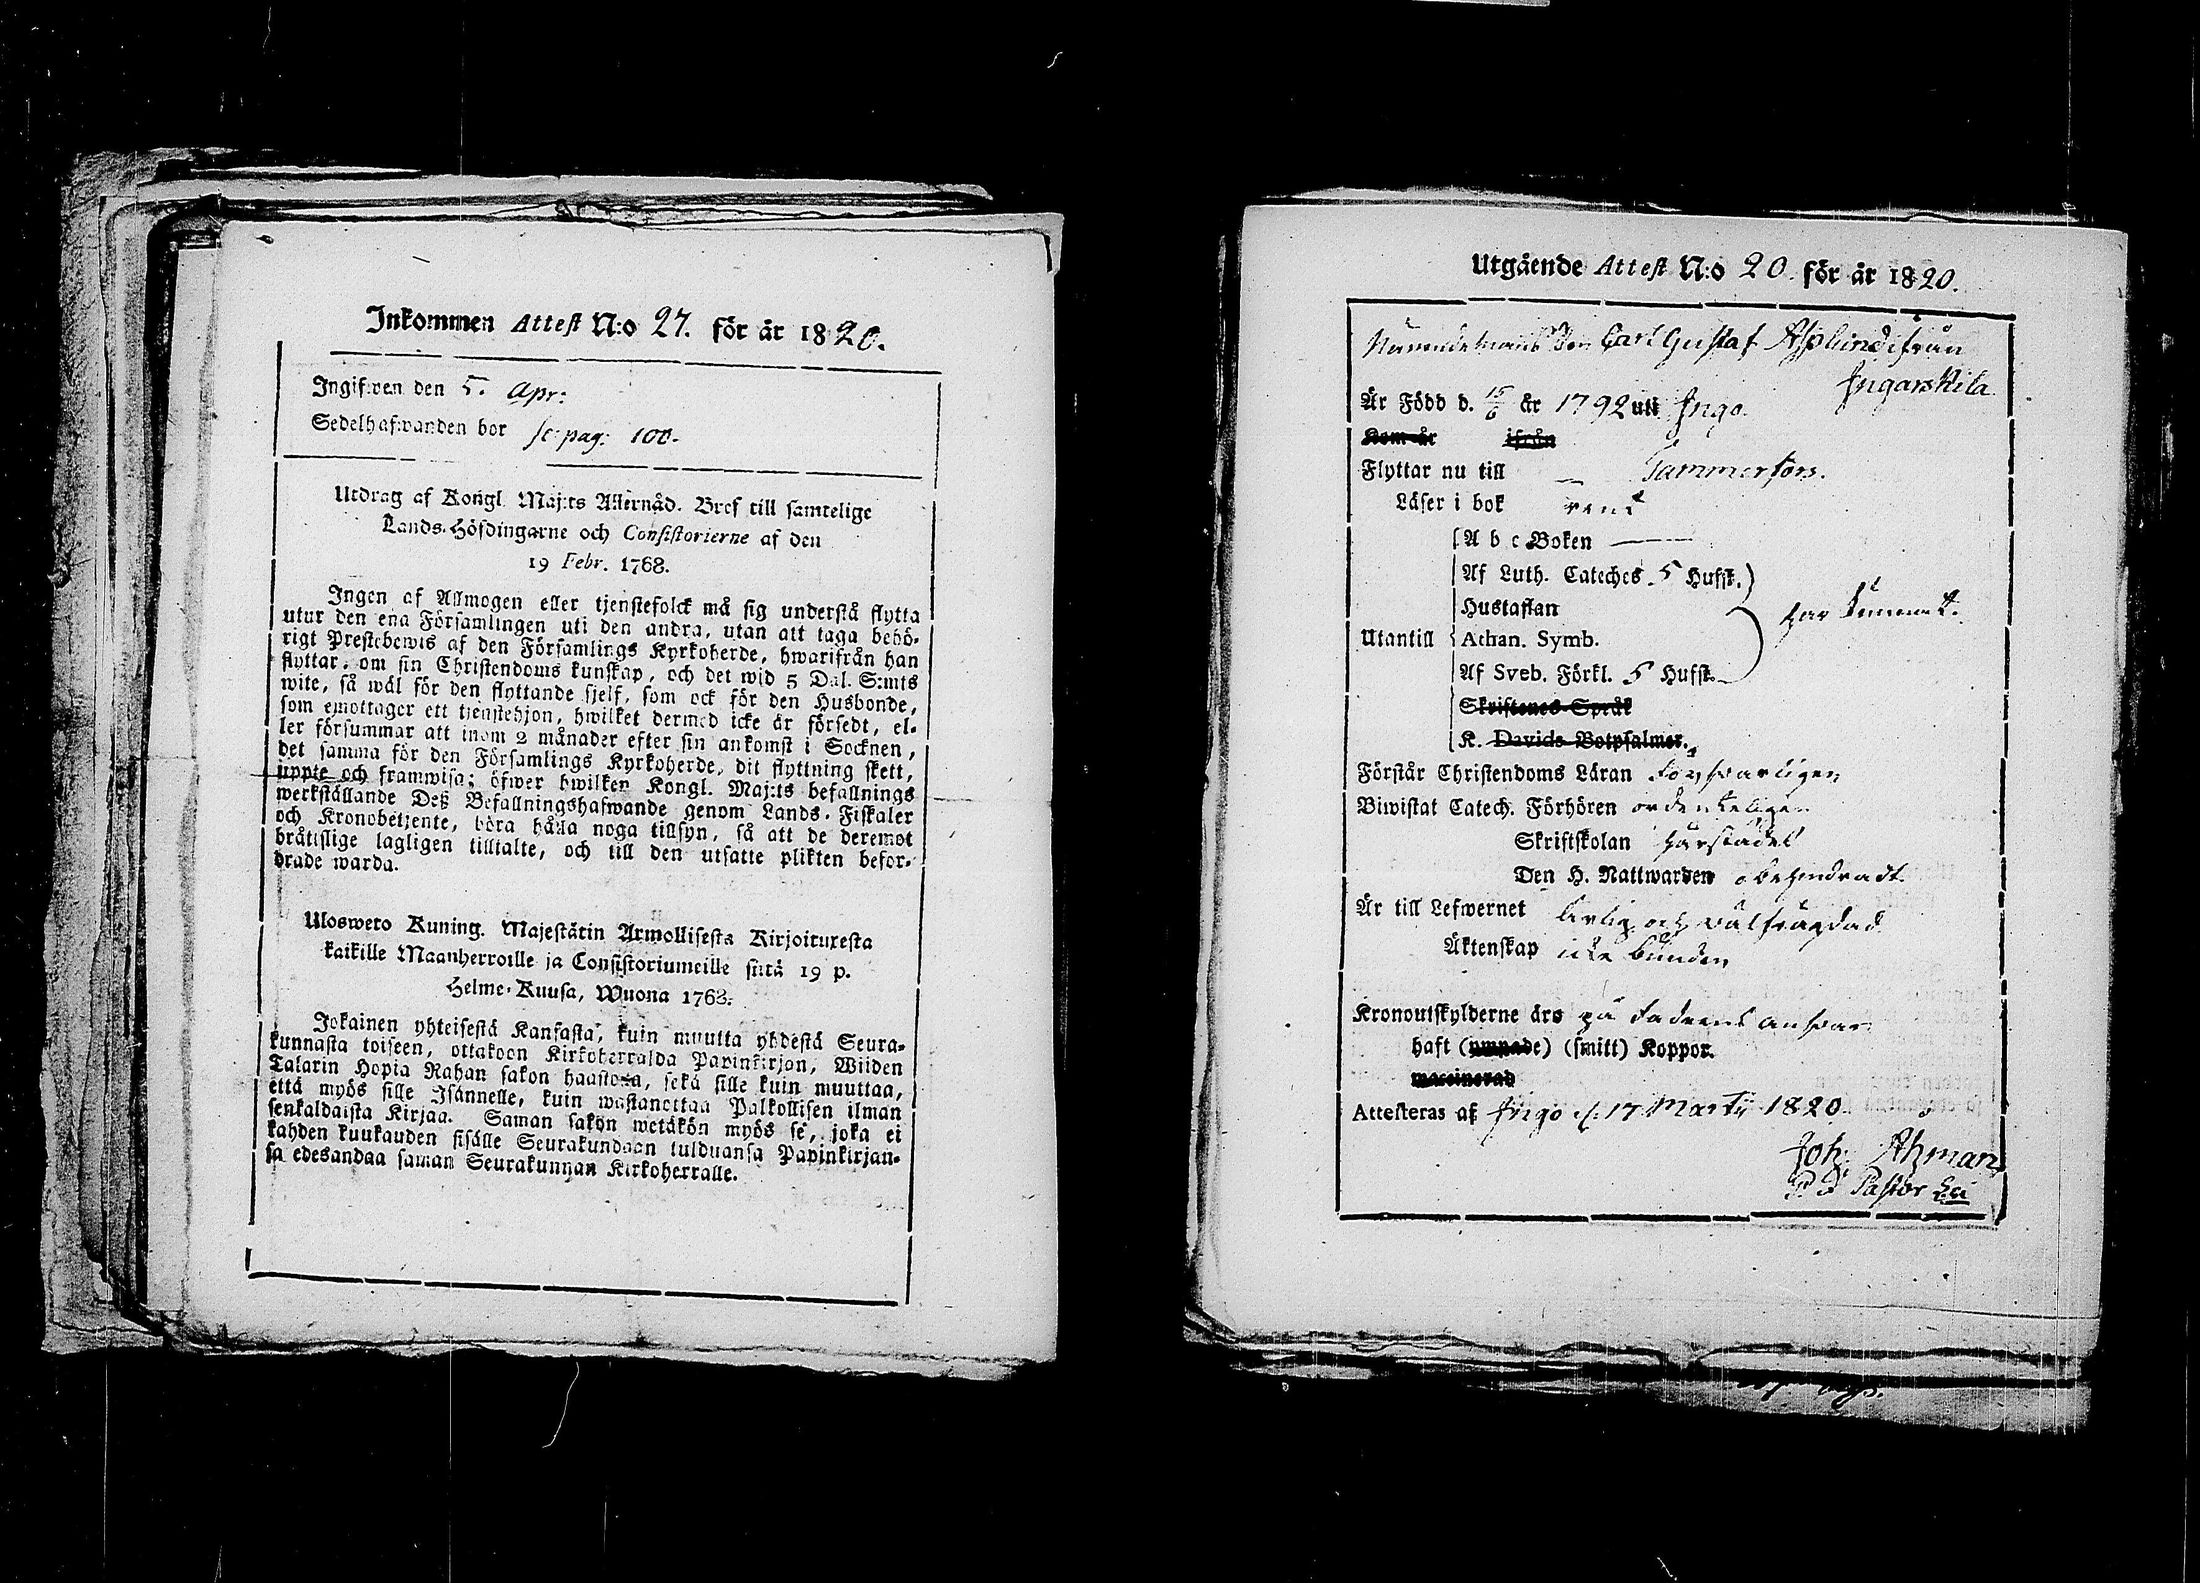 Inkommen Attest N:o 27. för år 1820.
Ingifwen den 5. Apr:
Sedelhafwanden bor sc: pag: 100.
Utdrag af Kongl. Maj:ts Allernåd. Bref till samtelige
Lands-Höfdingarne och Consistorierne af den
19 Febr. 1768.
Ingen af Allmogen eller tjenstefolck må sig understå flytta
utur den ena Församlingen uti den andra, utan att taga behö-
rigt Prestebewis af den Församlings Kyrkoherde, hwarifrån han
flyttar, om sin Christendoms kunskap, och det wid 5 Dal. S:mts
wite, så wäl för den flyttande sjelf, som ock för den Husbonde,
som emottager ett tjenstehjon, hwilket dermed icke är försedt, el-
ler försummar att inom 2 månader efter sin ankomst i Socknen,
det samma för den Församlings Kyrkoherde, dit flyttning skett,
uppte och framwisa; öfwer hwilken Kongl. Maj:ts befallnings
werkställande Deß Befallningshafwande genom Lands-Fiskaler
och Kronobetjente, böra hålla noga tillsyn, så att de deremot
bråttslige lagligen tilltalte, och till den utsatte plikten befor-
drade warda.
Ulosweto Kuning. Majestätin Armollisesta Kirjoituxesta
kaikille Maanherroille ja Consistoriumeille siitä 19 p.
Helme-Kuusa, Wuona 1768.
Jokainen yhteisestä Kansasta, kuin muutta yhdestä Seura-
kunnasta toiseen, ottakoon Kirkoherralda Papinkirjan, Wiiden
Talarin Hopia Rahan sakon haastolla, sekä sille kuin muuttaa,
että myös sille Isännelle, kuin wastanottaa Palkollisen ilman
senkaldaista Kirjaa. Saman sakon wetäkön myös se, joka ei
kahden kuukauden sisälle Seurakundaan tulduansa Papinkirjan-
sa edesandaa saman Seurakunnan Kirkoherralle.
Utgående Attest N:o 20. för år 1820.
Carl Gustaf Asplund ifrån
Ingarskila
Är Född d. 15/6 år 1792 uti Ingo.
Kom år ifrån
Flyttar nu till Tammerfors.
Läser i bok rent
A b c Boken
Af Luth. Cateches 5 Hufst.
Hustaflan
Utantill Athan. Symb. har lärnat.
Af Sveb. Förkl. 5 Hufst.
Skriftenes Språk
K. Davids Botpsalmer.
Förstår Christendoms Läran försvarligen
Biwistat Catech. Förhören ordenteligen
Skriftskolan härstädes
Den H. Nattwarden obehindradt
Är till Lefwernet ärlig och wälfrägdad
Äktenskap icke bunden
Kronoutskylderne äro på Fadrens answar
haft (ympade) (smitt) Koppor.
vaccinerad
Attesteras af Ingo d. 17 Martii 1820.
Joh. Ahman
P. d. Pastor Loci